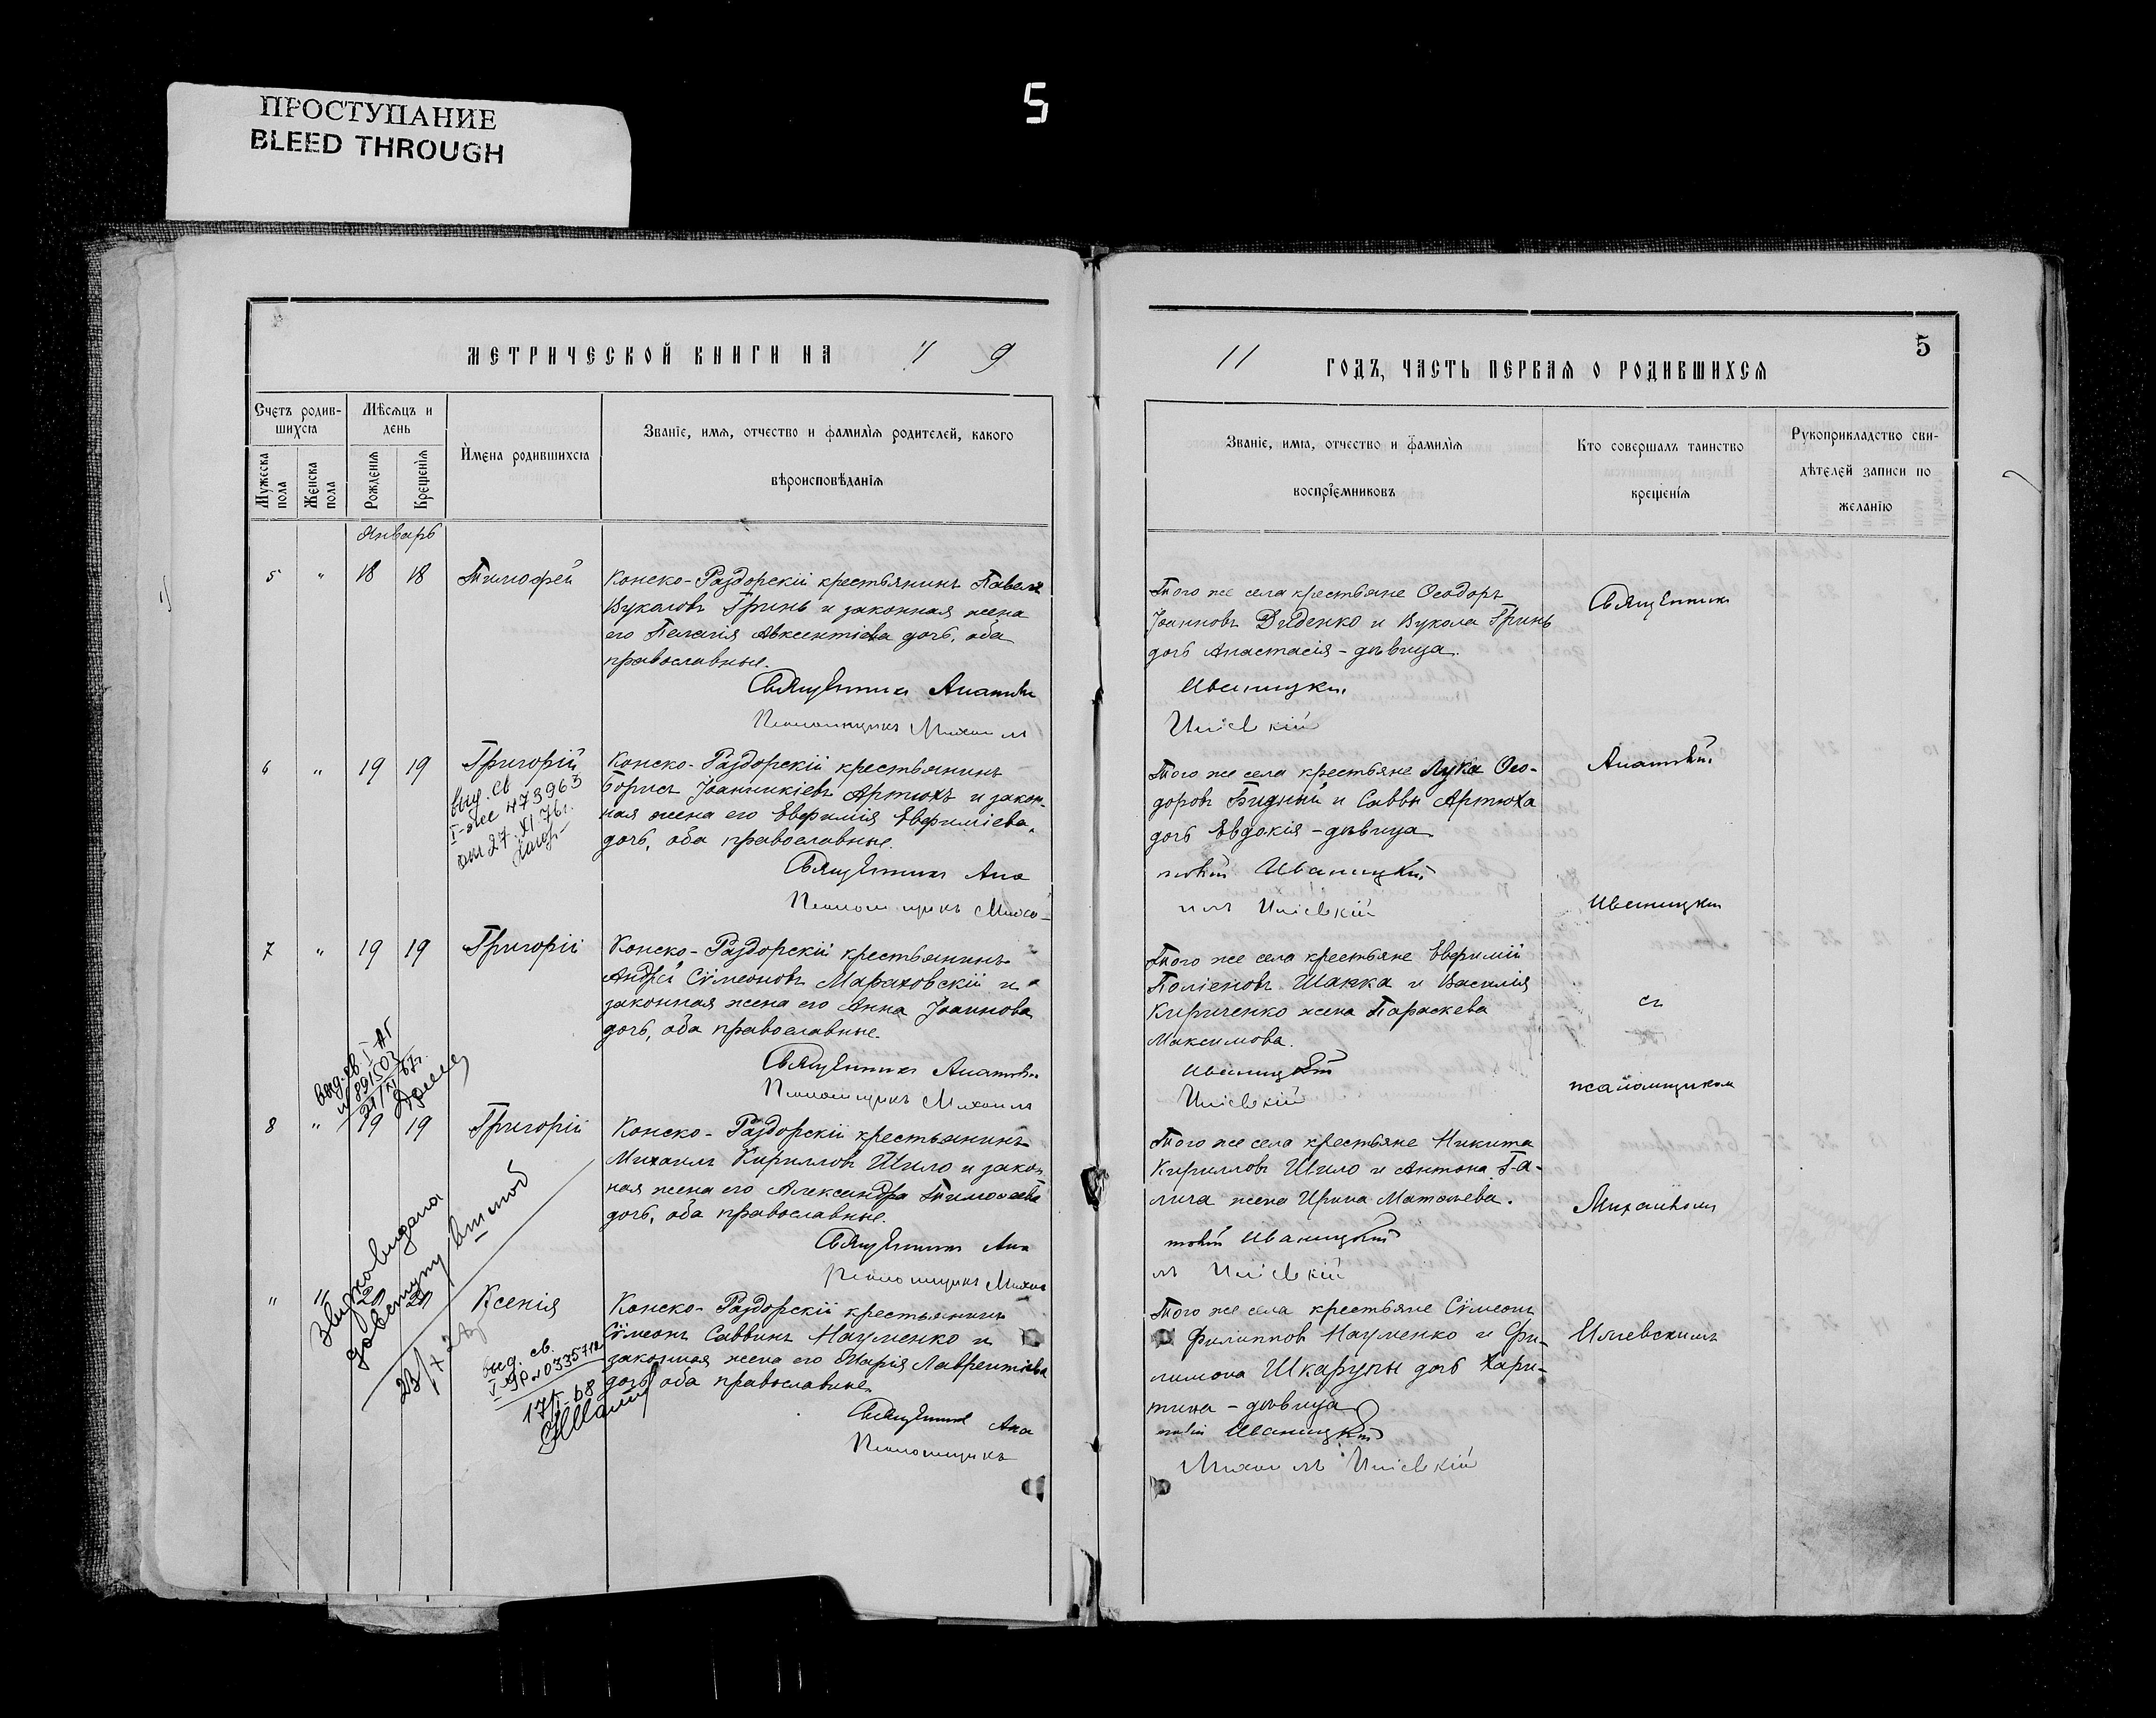 ПРОСТУПАНИЕ
BLEED THROUGH
5
МЕТРИЧЕСКОЙ КНИГИ НА 19
Счетъ родив-
шихсѧ
Мѣсѧцъ и
день
Мужеска
пола
Женска
пола
Рожденїѧ
Крещенїѧ
Имена родившихсѧ
Званїе, имѧ, отчество и фамилїѧ родителей, какого
вѣроисповѣданїѧ
Январь
5 " 18 18 Тимофей
Конско-Раздорскій крестьянинъ Павелъ
Вуколовъ Гринь и законная жена
его Пелагія Авксентіева дочь, оба
православные.
Священникъ Анатолій
Псаломщикъ Михаилъ
6 " 19 19 Григорій
выд. св
I-же 473963
27.XI.76г.
Конско-Раздорскій крестьянинъ
Борисъ Іоанникіевъ Артюхъ и закон-
ная жена его Евфимія Евфиміева
дочь, оба православные.
Священникъ Ана
Псаломщикъ Миха-
7 " 19 19 Григорій
Конско-Раздорскій крестьянинъ
Андрей Сѵмеоновъ Мараховскій и
законная жена его Анна Іоаннова
дочь, оба православные.
Священникъ Анатолій
Псаломщикъ Михаилъ
выд. св. I-АГ
№891503
21/XI 67г.
8 " 19 19 Григорій
Конско-Раздорскій крестьянинъ
Михаилъ Кирилловъ Шило и закон-
ная жена его Александра Тимофеева
дочь, оба православные.
Священникъ Ана
Псаломщикъ Михаи
" " 20 20 Ксенія
выд. св.
V-ЯР №0335712
17/I-68
Конско-Раздорскій крестьянинъ
Сѵмеонъ Саввинъ Науменко и
законная жена его Марія Лаврентіева
дочь, оба православные.
Священникъ Ана
Псаломщикъ
11 ГОДЪ, ЧАСТЬ ПЕРВАѦ О РОДИВШИХСѦ
5
Званїе, имѧ, отчество и фамилїѧ
воспрїемниковъ
Кто совершалъ таинство
крещенїѧ
Рукоприкладство сви-
дѣтелей записи по
желанїю
Того же села крестьяне Ѳеодоръ
Іоанновъ Диденко и Вукола Гринь
дочь Анастасія - дѣвица.
Иваницкій
Ильевскій
Священникъ
Того же села крестьяне Лука Ѳео-
доровъ Бидный и Саввы Артюха
дочь Евдокія - дѣвица
толій Иваницкій
илъ Ильевскій
Анатолій
Иваницкій
Того же села крестьяне Евфимій
Поліеновъ Шапка и Василія
Кириченко жена Параскева
Максимова.
Иваницкій
Ильевскій
съ
псаломщикомъ
Того же села крестьяне Никита
Кирилловъ Шило и Антона Га-
лича жена Ирина Матѳеева.
толій Иваницкій
лъ Ильевскій
Михаиломъ
Того же села крестьяне Сѵмеонъ
Филипповъ Науменко и Фи-
лимона Шкарупы дочь Хари-
тина - дѣвица
толій Иваницкій
Михаилъ Ильевскій
Ильевскимъ